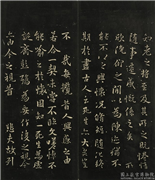 知老之將至及其所之既惓
隨事遷感慨係之矣向之所
欣俛仰之間以為陳迹猶不
能不以之興懷況脩短隨化終
期於盡古人云死生亦大矣
不 哉每攬昔人興感之由
若合一契未嘗不臨文嗟悼不
能喻之於懷固知一死生為虛
誕齊彭殤為妄作後之視今
亦由今之視昔 悲夫故列